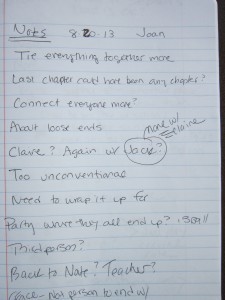 Notes 8.20.13 Joan
Tie everything together more
Last chapter could have been any chapter?
Connect everyone more?
About loose ends
more w/ Elaine
Claire? Again w/ Jack?
Too unconventional
Need to wrap it up for
Party where they all end up?
Third person?
Back to Nate? Teacher?
Grace - Not person to end w/